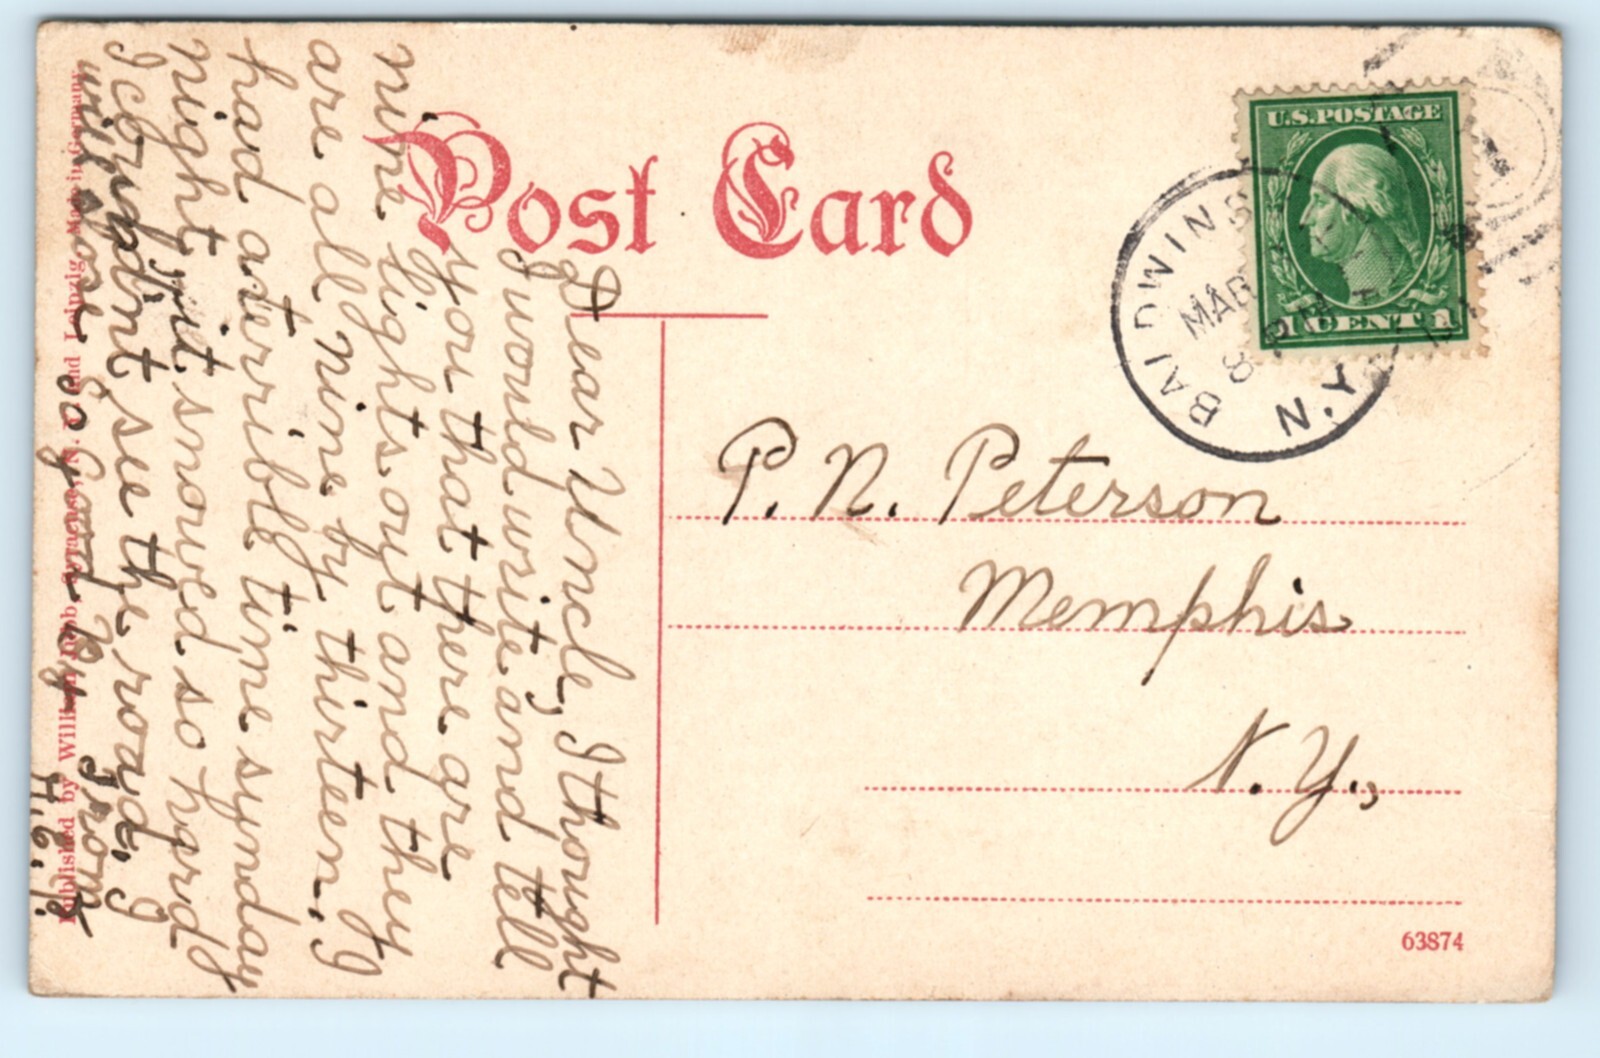 Post Card
U.S. POSTAGE
1 CENT 1
BALDWINS
MAR
8
N.Y.
P. N. Peterson
Memphis
N. Y.,
63874
Dear Uncle, I thought
I would write and tell
you that there are
nine lights out and they
are all nine by thirteen. I
had a terrible time sunday
night it snowed so hard
I couldnt see the road. I
will close so Good By from
H. G. P.
Published by William Jubb, Syracuse, N. Y. and Leipzig. Made in Germany.